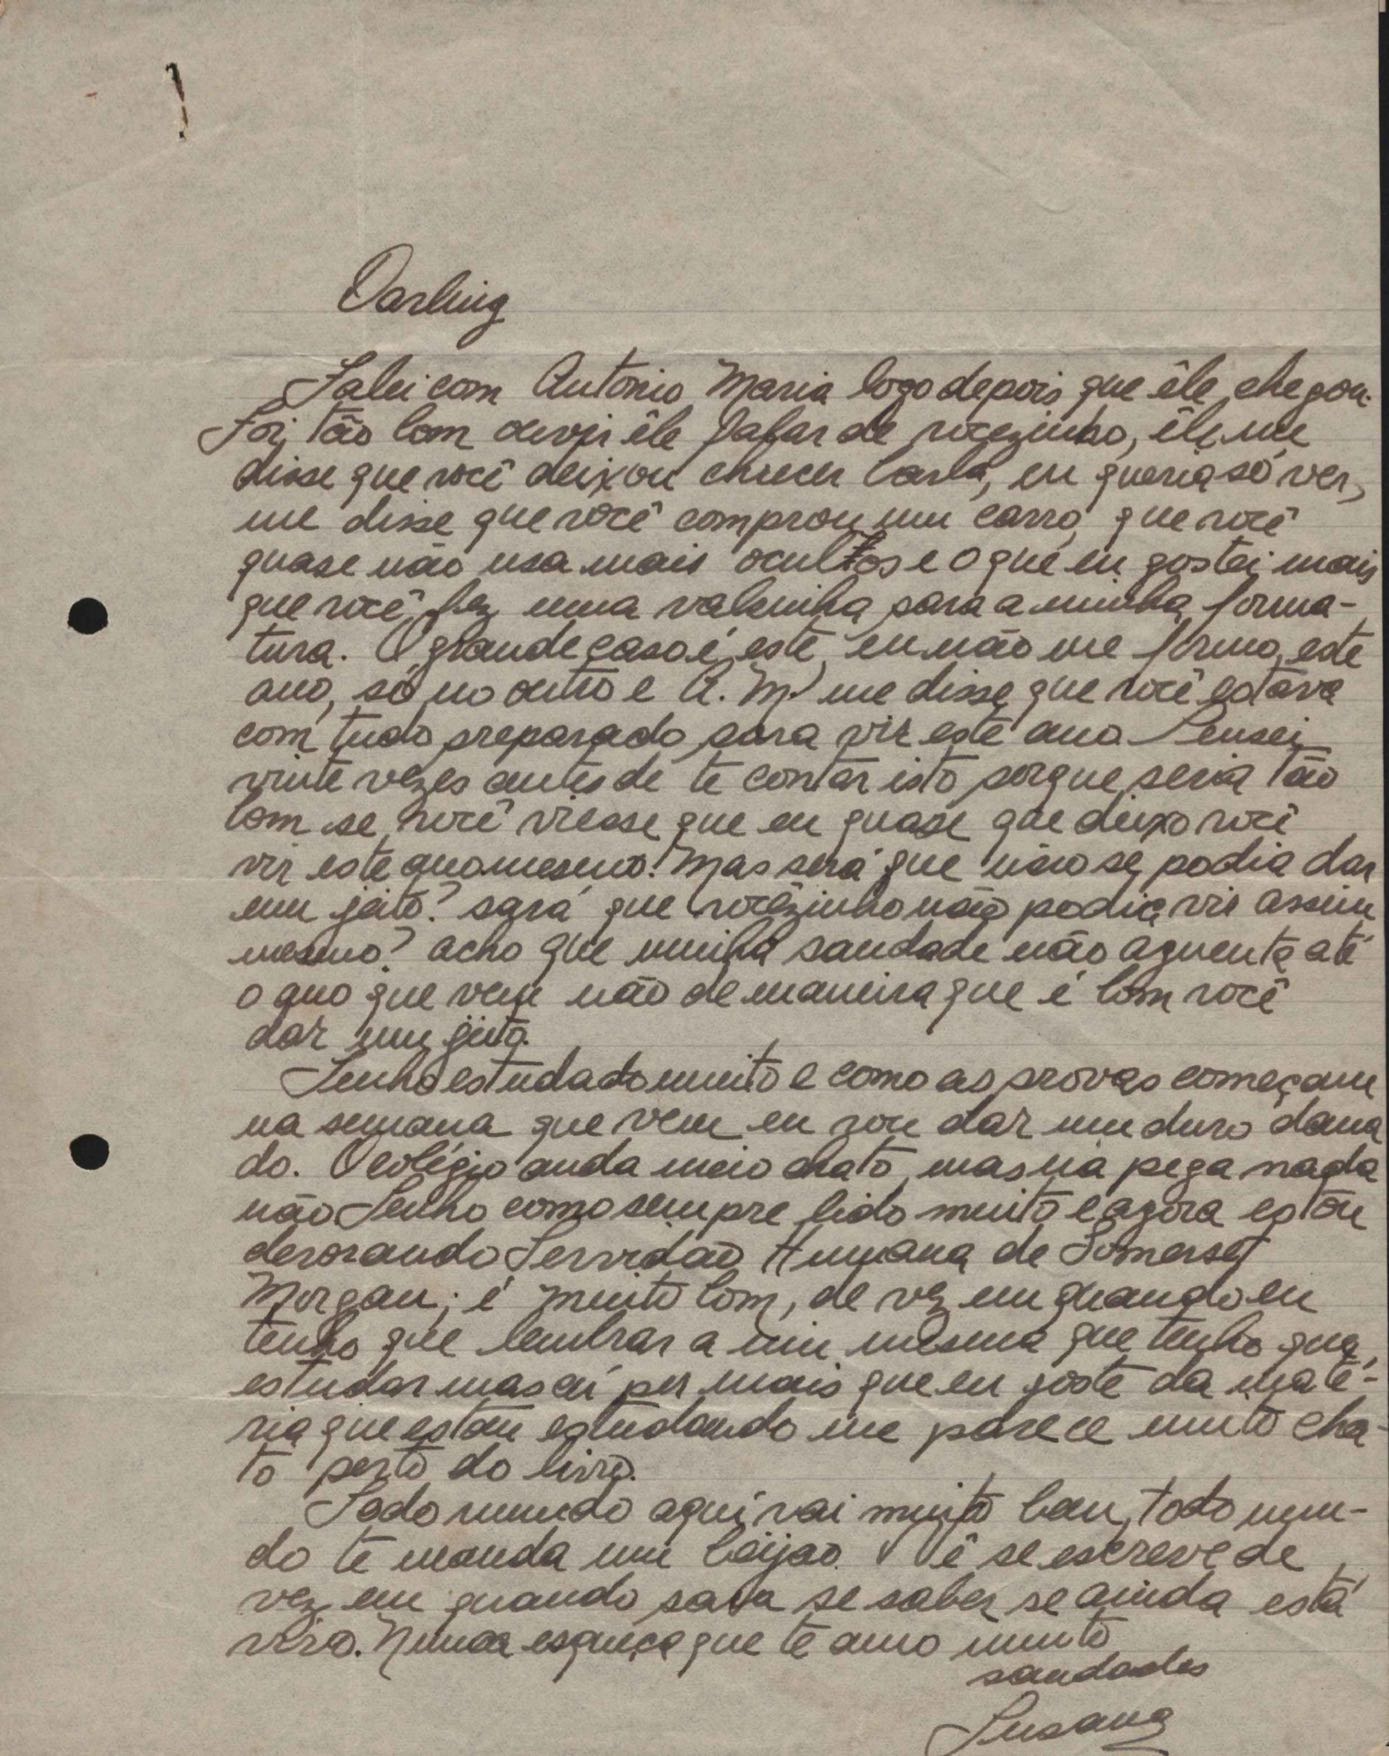 Darling
Falei com Antonio Maria logo depois que êle chegou.
Foi tão bom ouvir êle falar de vocezinho, êle me
disse que você deixou crescer barba, eu queria só ver,
me disse que você comprou um carro, que você
quase não usa mais ocultos e o que eu gostei mais
que você fez uma valsinha para a minha forma-
tura. O grande caso é este, eu não me formo este
ano, só no outro e A. M. me disse que você estava
com tudo preparado para vir este ano. Pensei
vinte vezes antes de te contar isto porque seria tão
bom se você viesse que eu quase que deixo você
vir este ano mesmo. Mas será que não se podia dar
um jeito? sará que vocêzinho não podia vir assim
mesmo? acho que minha saudade não aguenta até
o ano que vem não de maneira que é bom você
dar um jeito.
Tenho estudado muito e como as provas começam
na semana que vem eu vou dar um duro dana
do. O colégio anda meio chato, mas não pega nada
não Tenho como sempre lido muito e agora estou
devorando Servidão Humana de Somerset
Morgan; é muito bom, de vez em quando eu
tenho que lembrar a mim mesma que tenho que
estudar mas aí por mais que eu goste da maté-
ria que estou estudando me parece muito cha-
to perto do livro.
Todo mundo aqui vai muito bem, todo mun-
do te manda um beijao. Vê se escreve de
vez em quando para se saber se ainda está
vivo. Nunca esqueça que te amo muito
saudades
Susana